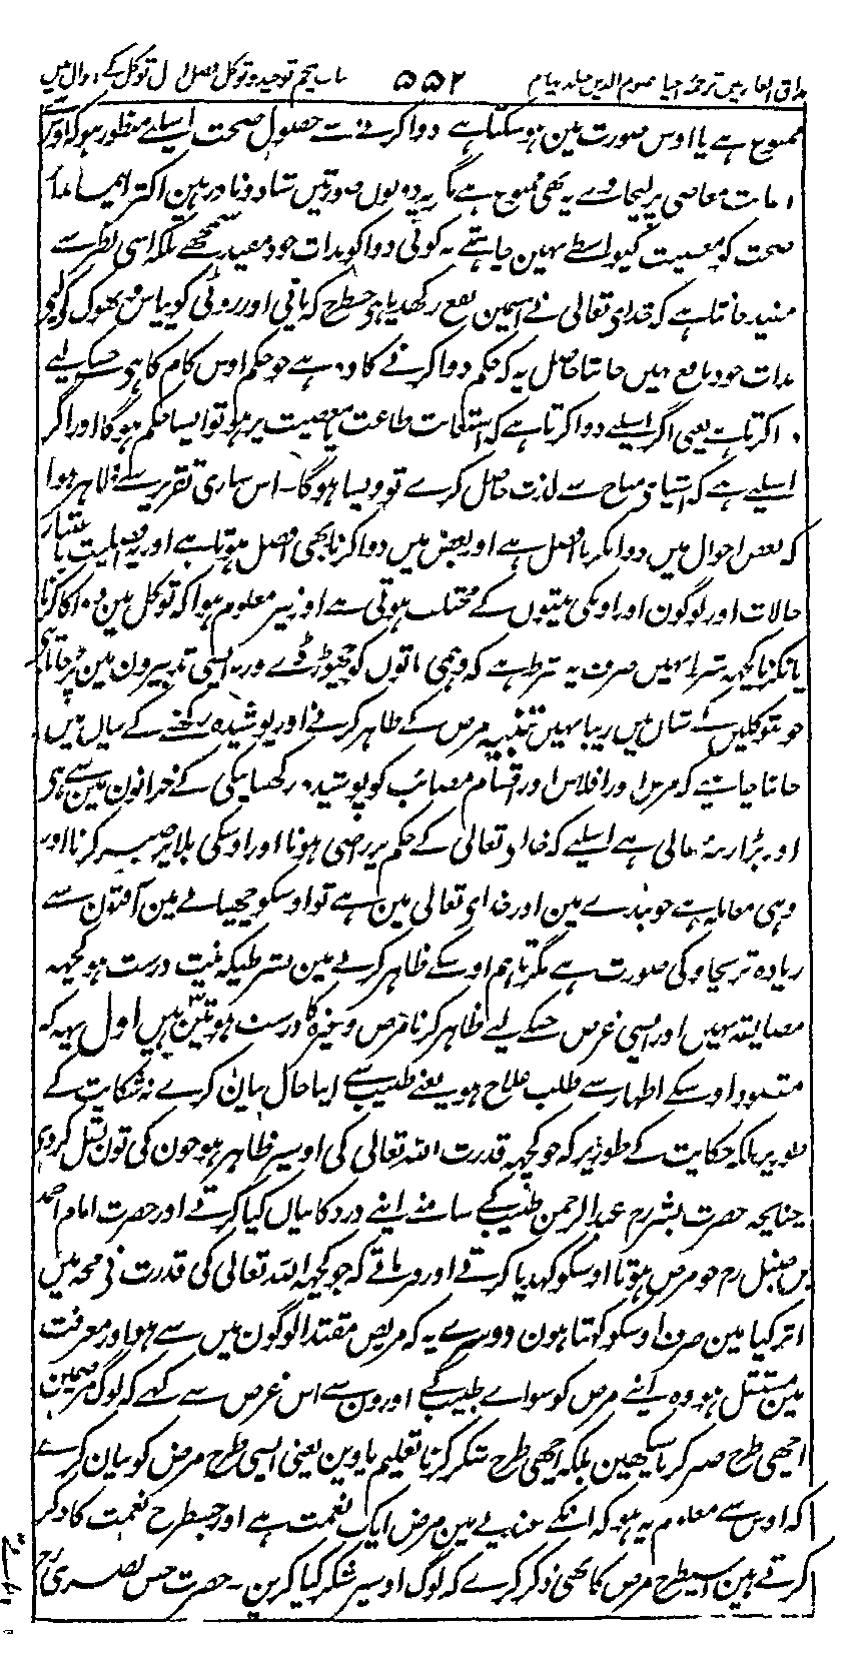 مذاق العارفین ترجمہ احیاء علوم الدین جلد چہارم ۵۵۲ باب پنجم توحید و توکل فصل توکل کے احوال میں
ممنوع ہے یا اوس صورت مین ہو سکتا ہے دوا کرنے سے حصول صحت اسلیے منظور ہو کہ اوس سے
معاصی پر لیجاوے یہ بھی ممنوع ہے مگر یہ دونوں صورتیں شاذ و نادر ہین اکثر ایماندار
صحت کو معصیت کیواسطے نہین چاہتے نہ کوئی دوا کو بذات خود مفید سمجھے بلکہ اسی نظر سے
مفید جانتا ہے کہ خدای تعالی نے اسمین نفع رکھدیا ہی جسطرح کہ پانی اور روٹی کو پیاس و بھوک کو لیے
بذات خود نافع نہیں جانتا حاصل یہ کہ حکم دوا کرنے کا وہی ہے جو حکم اوس کام کا ہی جسکے لیے
دوا کرتا ہے یعنی اگر اسلیے دوا کرتا ہے کہ استعانت طاعت یا معصیت پر ہو تو ایسا حکم ہوگا اور اگر
اسلیے ہے کہ اشیای مباح سے لذت حاصل کرے تو ویسا ہوگا۔ اس ساری تقریر سے ظاہر ہوا
کہ بعض احوال میں دوا نکرنا افضل ہے اور بعض میں دوا کرنا بھی افضل ہوتا ہے اور یہ افضلیت باعتبار
حالات اور لوگون اور اونکی نیتوں کے مختلف ہوتی ہے اور نیز معلوم ہوا کہ توکل مین دوا کا کرنا
یا نکرنا کچھ شرط نہیں صرف یہ شرط ہے کہ وہمی باتوں کو چھوڑ دے ورنہ ایسی تدبیرون مین پڑ جاتا ہی
جو متوکلین کے شان میں زیبا نہیں تنبیہ مرض کے ظاہر کرنے اور پوشیدہ رکھنے کے بیان میں
جاننا چاہیے کہ مرض اور افلاس اور اقسام مصائب کو پوشیدہ رکھنا نیکی کے خزانون مین سے ہی
اور بڑا رتبہ عالی ہے اسلیے کہ خدای تعالی کے حکم پر راضی ہونا اور اوسکی بلا پر صبر کرنا اور
وہی معاملہ ہے جو بندے مین اور خدای تعالی مین ہے تو اوسکو چھپانے مین آفتون سے
زیادہ تر بچاو کی صورت ہے مگر تاہم اوسکے ظاہر کرنے مین بشرطیکہ نیت درست ہو کچھ
مضایقہ نہیں اور ایسی غرض جسکے لیے ظاہر کرنا مرض وغیرہ کا درست ہو تین ہیں اول یہہ کہ
مقصود اوسکے اظہار سے طلب علاج ہو یعنے طبیب سے اپنا حال بیان کرے نہ شکایت کے
طور پر بلکہ حکایت کے طور پر کہ جو کچھ قدرت اللہ تعالی کی اوسپر ظاہر ہو جون کی تون نقل کردی
چنانچہ حضرت بشر رح عبدالرحمن طبیب کے سامنے اپنے درد کا بیان کیا کرتے اور حضرت امام احمد
بن حنبل رح جو مرض ہوتا اوسکو کہدیا کرتے اور فرماتے کہ جو کچھ اللہ تعالی کی قدرت نے مجھ میں
اثر کیا مین صرف اوسکو کہتا ہون دوسرے یہ کہ مریض مقتدا لوگون میں سے ہو اور معرفت
مین مستقل ہو وہ اپنے مرض کو سواے طبیب کے اورون سے اس غرض سے کہے کہ لوگ مرض مین
اچھی طرح صبر کرنا سیکھین بلکہ اچھی طرح شکر کرنا تعلیم پاوین یعنی ایسی طرح مرض کو بیان کرے
کہ اوس سے معلوم یہ ہو کہ انکے عندیے مین مرض ایک نعمت ہے اور جسطرح نعمت کا ذکر
کرتے ہین اسیطرح مرض کا بھی ذکر کرے کہ لوگ اوسپر شکر کیا کرین۔ حضرت حسن بصری رح